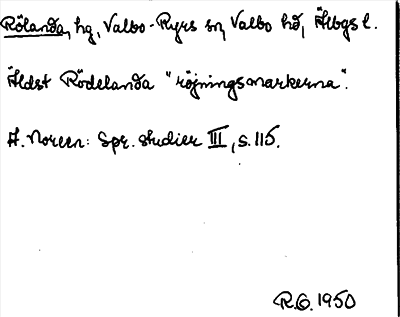 Rölanda, hg, Valbo-Ryrs sn, Valbo hd, Älvbgs l.
Äldst Rödelanda "röjningsmarkerna".
A. Noreen: Spr. studier III, s. 115.
R.G. 1950